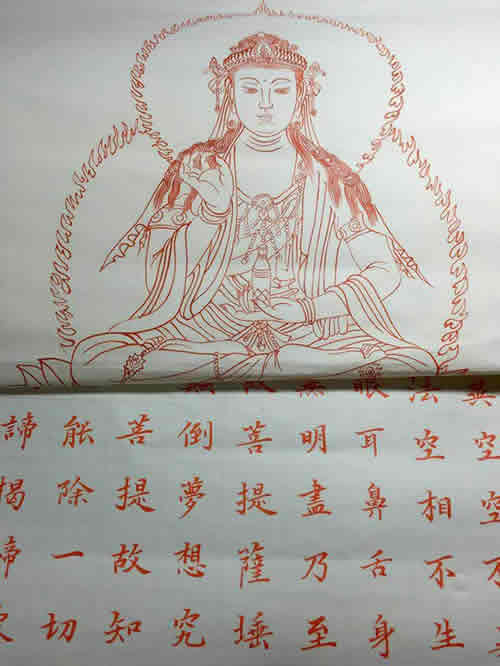 異空空不
法空相不生
眼耳鼻舌身
無明盡乃至
菩提薩埵
倒夢想究
菩提故知
能除一切
諦揭諦